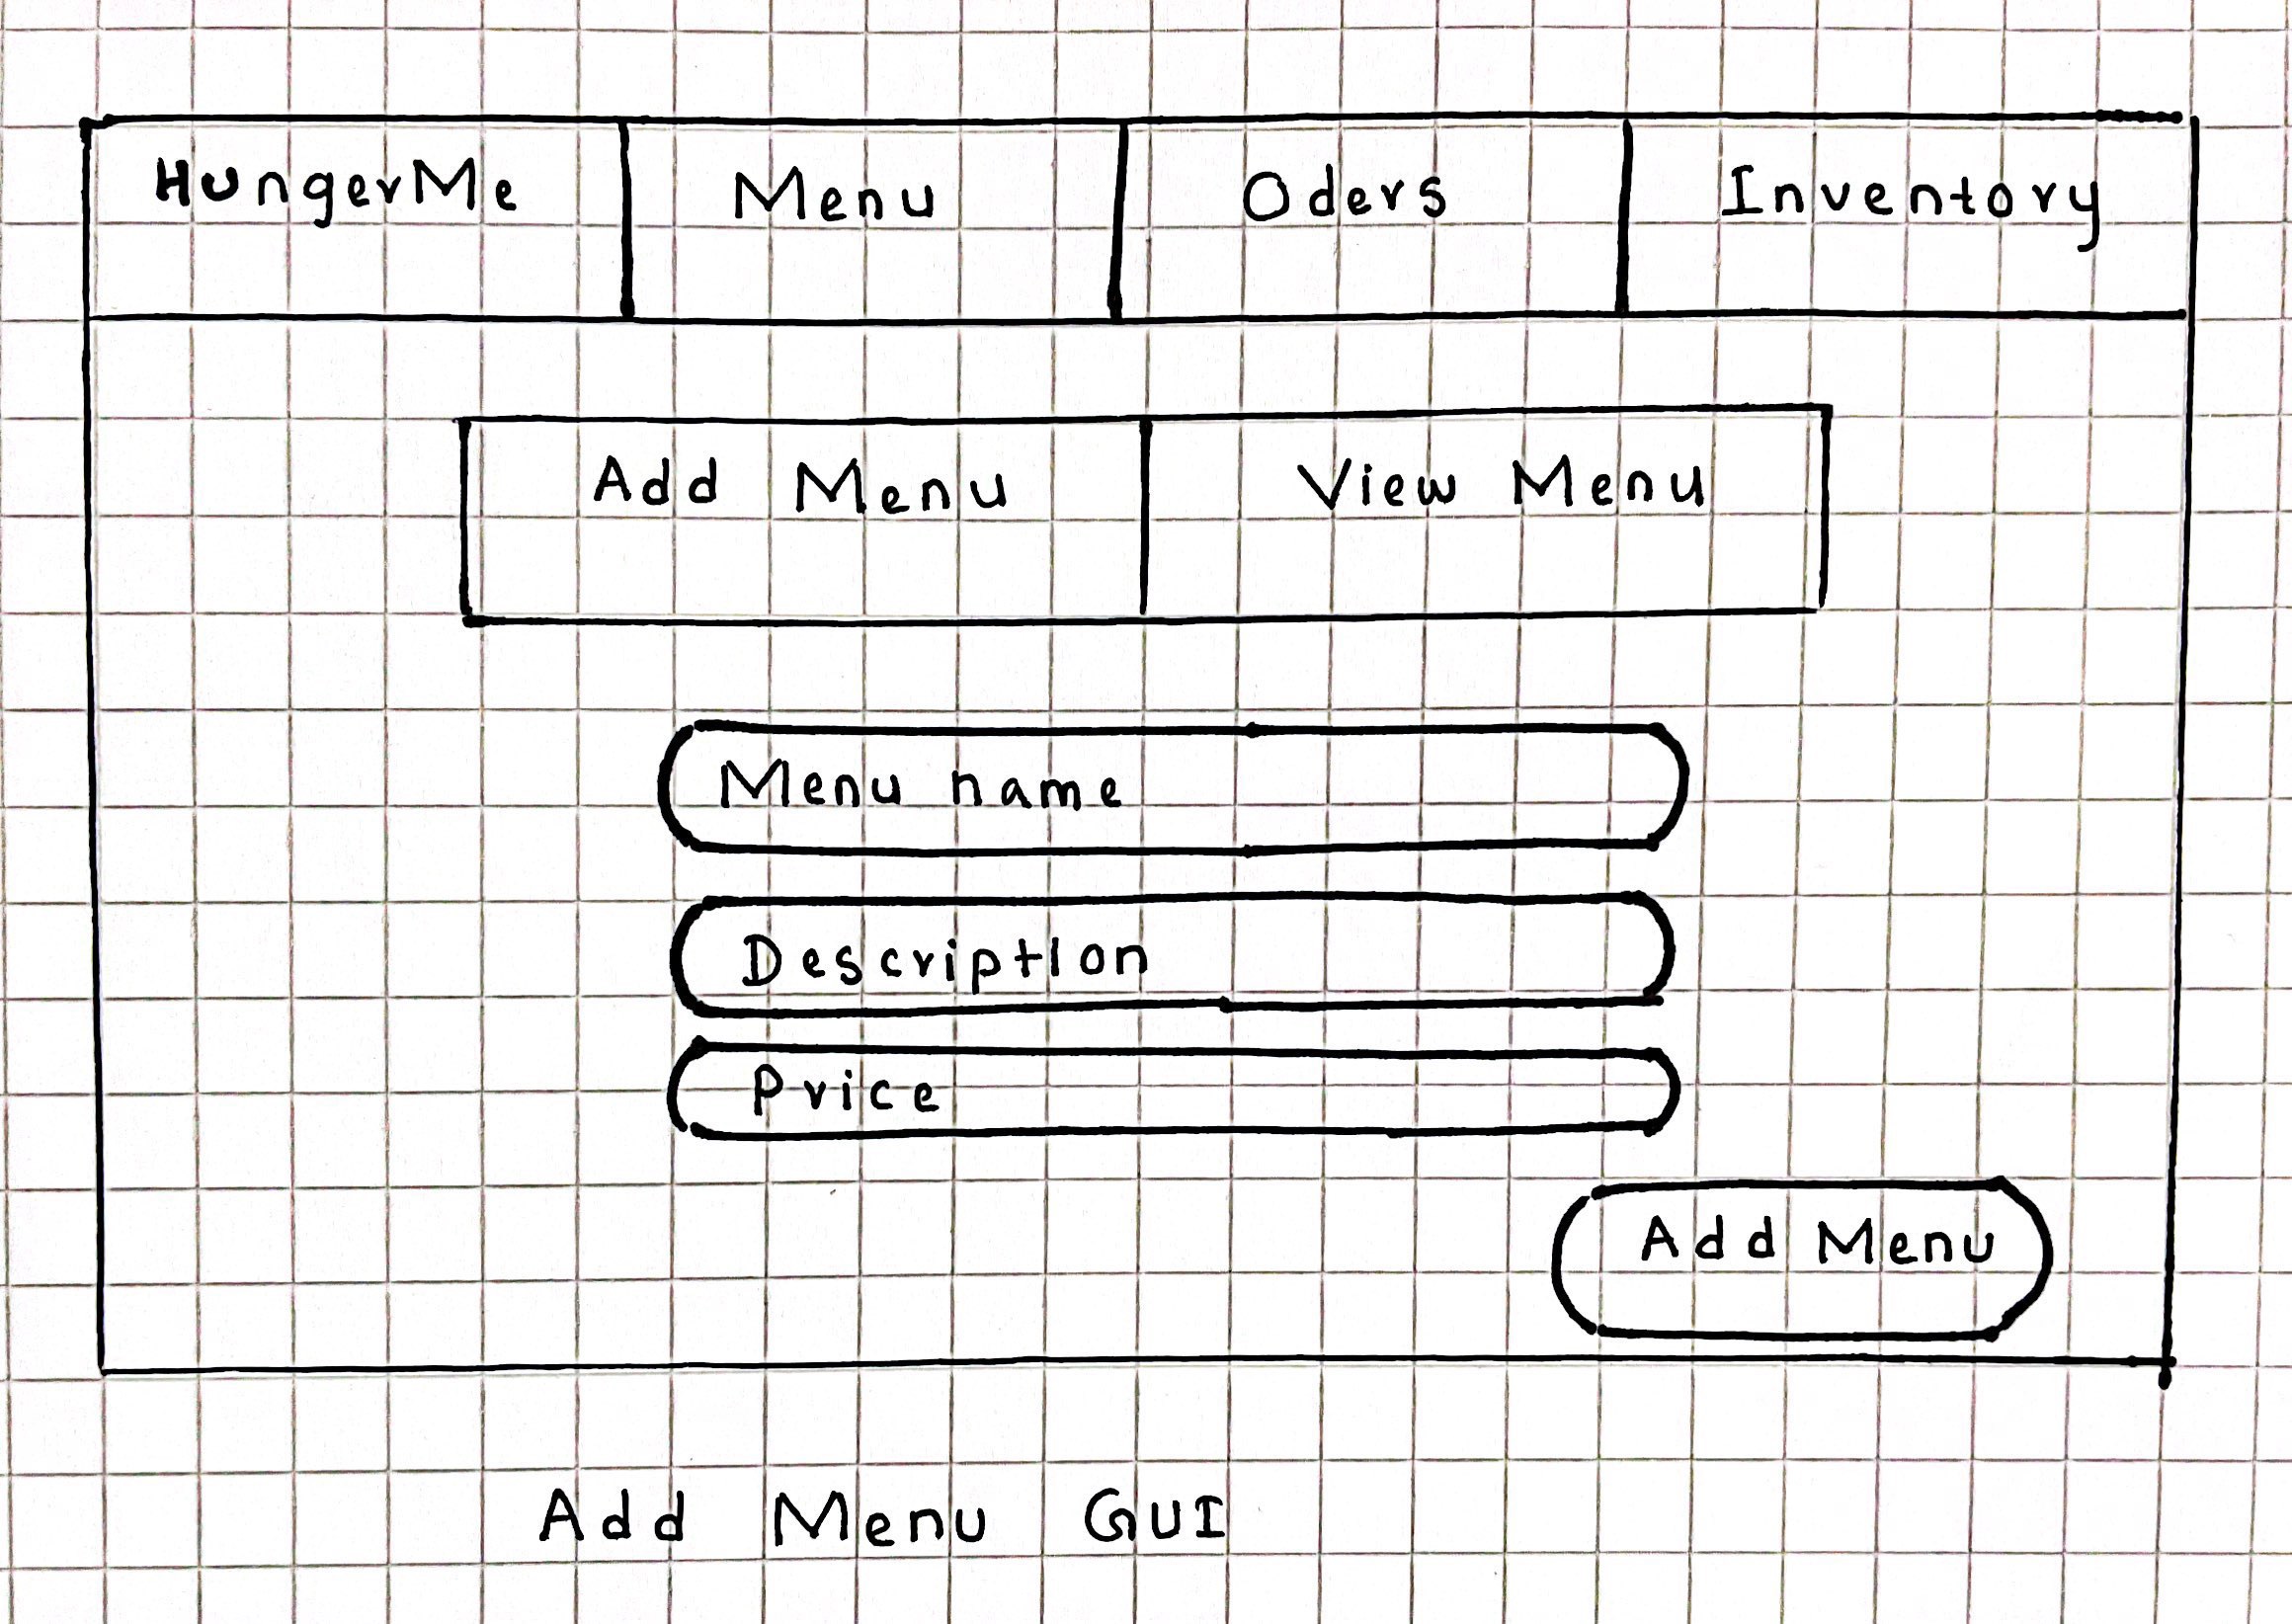 HungerMe Menu Oders Inventory
Add Menu View Menu
Menu name
Description
Price
Add Menu
Add Menu GUI